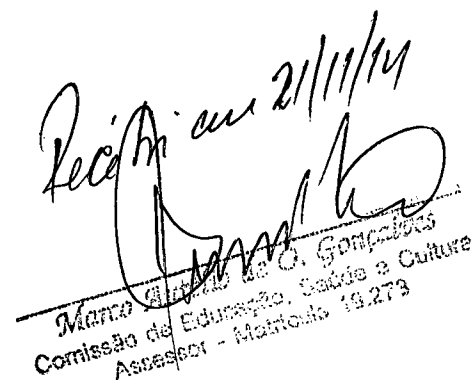 Recebi em 21/11/14
Marco Aurélio de O. Gonçalves
Comissão de Educação, Saúde e Cultura
Assessor - Matrícula 19.279